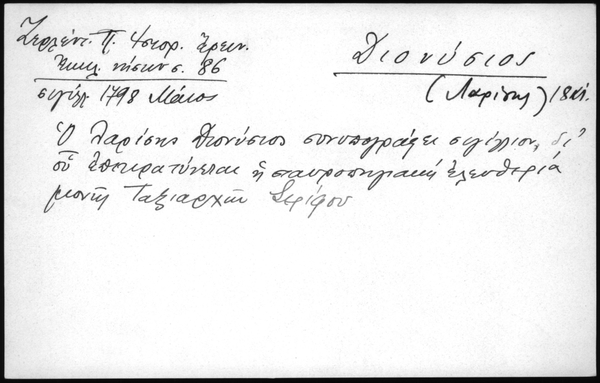 Ζερλέντ. Π. Ἱστορ. Ἔρευν.
Ἐκκλ. νήσων σ. 86
σιγίλ. 1798 Μάιος
Διονύσιος
(Λαρίσης) 18
Ὁ Λαρίσης Διονύσιος συνυπογράφει σιγίλλιον, δι'
οὗ ἐπικρατύνεται ἡ σταυροπηγιακή ἐλευθερία
μονῆς Ταξιαρχῶν Σερίφου